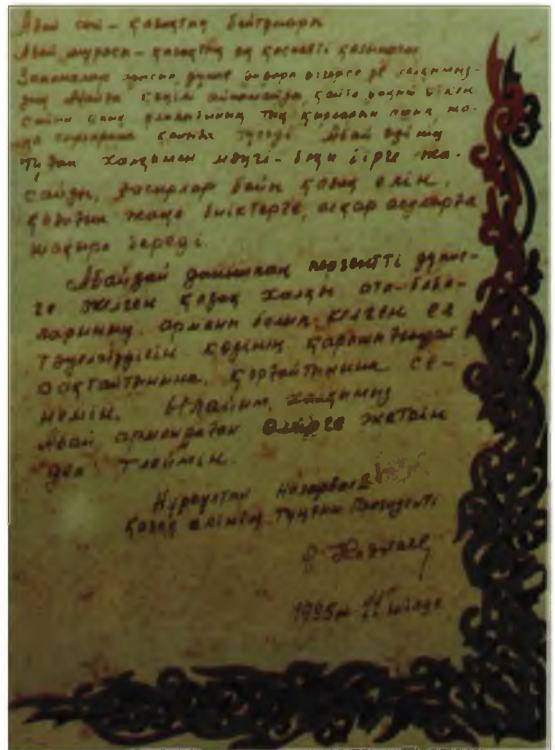 Абай сөзі – қазақтың бойтұмары
Абай мұрасы – қазақтың ең қасиетті қазынасы
Замандар ауысып дүние
Абайға көңілі айнымайды, қайта уақыт өткен
сайын оның тың қырларын ашып, жа-
түседі. Абай өзінің
туған халқымен мәңгі-бақи бірге жа-
сайды, ғасырлар бойы қазақ елін,
қазағын жаңа биіктерге, асқар асуларға
шақыра береді.
Абайдай данышпан перзентті дүние-
ге әкелген қазақ халқы ата-баба-
ларының арманы болып келген ел
тәуелсіздігін көзінің қарашығындай
сақтайтынына, қорғайтынына се-
немін. Ылайым, халқымыз
Абай армандаған өмірге жетсін
деп тілеймін.
Нұрсұлтан Назарбаев
Қазақ елінің тұңғыш Президенті
1995ж 11